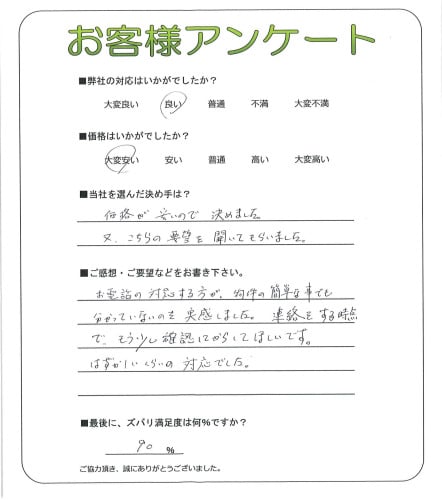 お客様アンケート
■弊社の対応はいかがでしたか?
大変良い 良い 普通 不満 大変不満
■価格はいかがでしたか?
大変安い 安い 普通 高い 大変高い
■当社を選んだ決め手は?
価格が安いので決めました。
又、こちらの要望を聞いてもらいました。
■ご感想・ご要望などをお書き下さい。
お電話の対応する方が、物件の簡単な事でも
分かっていないのを実感しました。連絡をする時点
で、もう少し確認してからしてほしいです。
はずかしいくらいの対応でした。
■最後に、ズバリ満足度は何%ですか?
90 %
ご協力頂き、誠にありがとうございました。